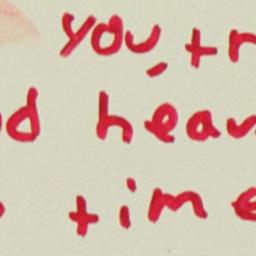 you, tr
d hear
time